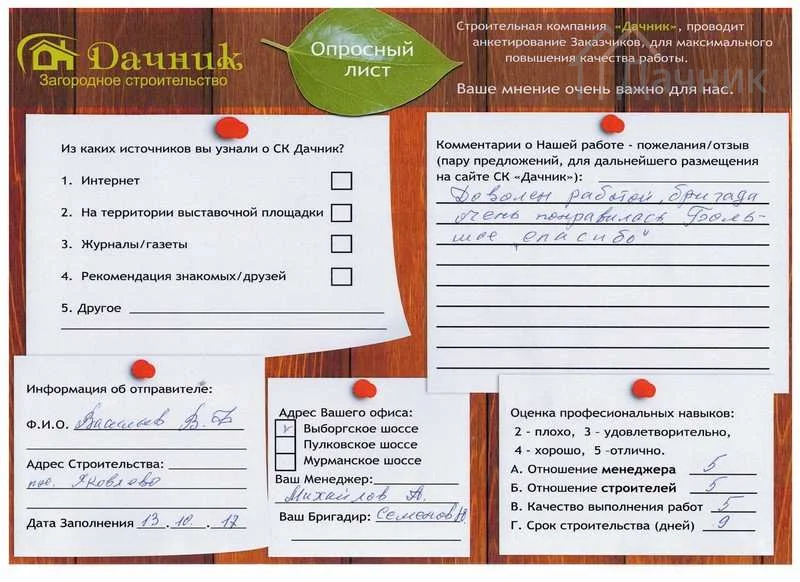 Дачник
Загородное строительство
Опросный
лист
Строительная компания «Дачник», проводит
анкетирование Заказчиков, для максимального
повышения качества работы.
Ваше мнение очень важно для нас.
Дачник
Из каких источников вы узнали о СК Дачник?
1. Интернет
2. На территории выставочной площадки
3. Журналы/газеты
4. Рекомендация знакомых/друзей
5. Другое
Комментарии о Нашей работе - пожелания/отзыв
(пару предложений, для дальнейшего размещения
на сайте СК «Дачник»):
Доволен работой, бригада
очень понравилась Боль-
шое спасибо"
Информация об отправителе:
Ф.И.О. Васильев В.Б
Адрес Строительства:
пос. Яковлево
Дата Заполнения 13.10.17
Адрес Вашего офиса:
V Выборгское шоссе
Пулковское шоссе
Мурманское шоссе
Ваш Менеджер:
Михайлов А.
Ваш Бригадир: Семенов
Оценка професиональных навыков:
2 - плохо, 3 - удовлетворительно,
4 - хорошо, 5 -отлично.
А. Отношение менеджера 5
Б. Отношение строителей 5
В. Качество выполнения работ 5
Г. Срок строительства (дней) 9